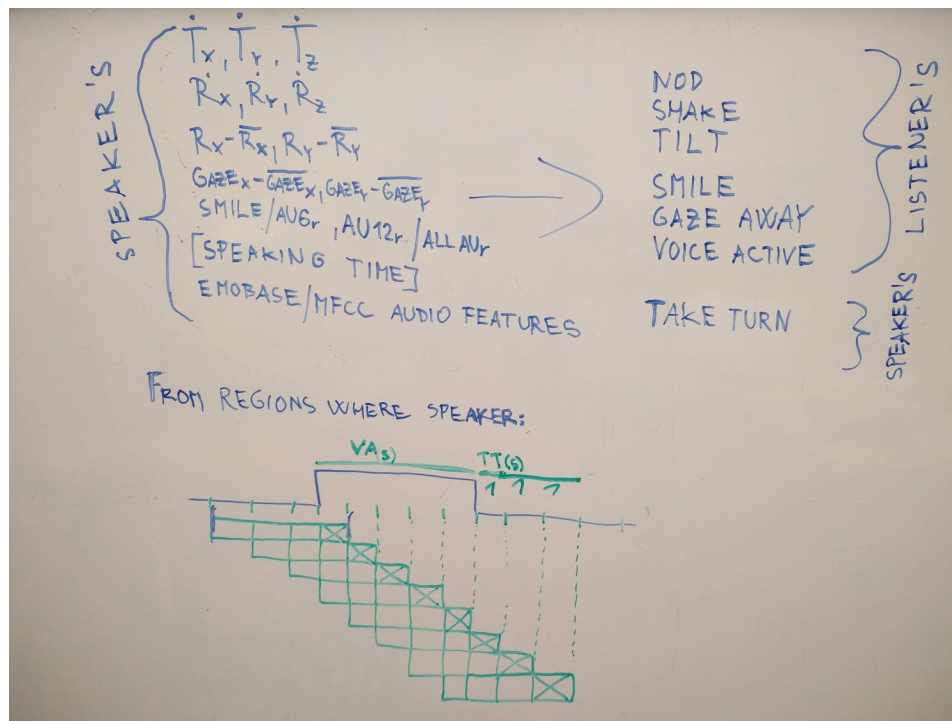 SPEAKER'S
Ṫx, Ṫy, Ṫz
Ṙx, Ṙy, Ṙz
Rx-R̅x, Ry-R̅y
GAZEx-G̅A̅Z̅E̅x, GAZEy-G̅A̅Z̅E̅y
SMILE/AU6r, AU12r/ALL AUr
[SPEAKING TIME]
EMOBASE/MFCC AUDIO FEATURES
NOD
SHAKE
TILT
SMILE
GAZE AWAY
VOICE ACTIVE
LISTENER'S
TAKE TURN
SPEAKER'S
FROM REGIONS WHERE SPEAKER:
VA(s) TT(s)
1 1 1